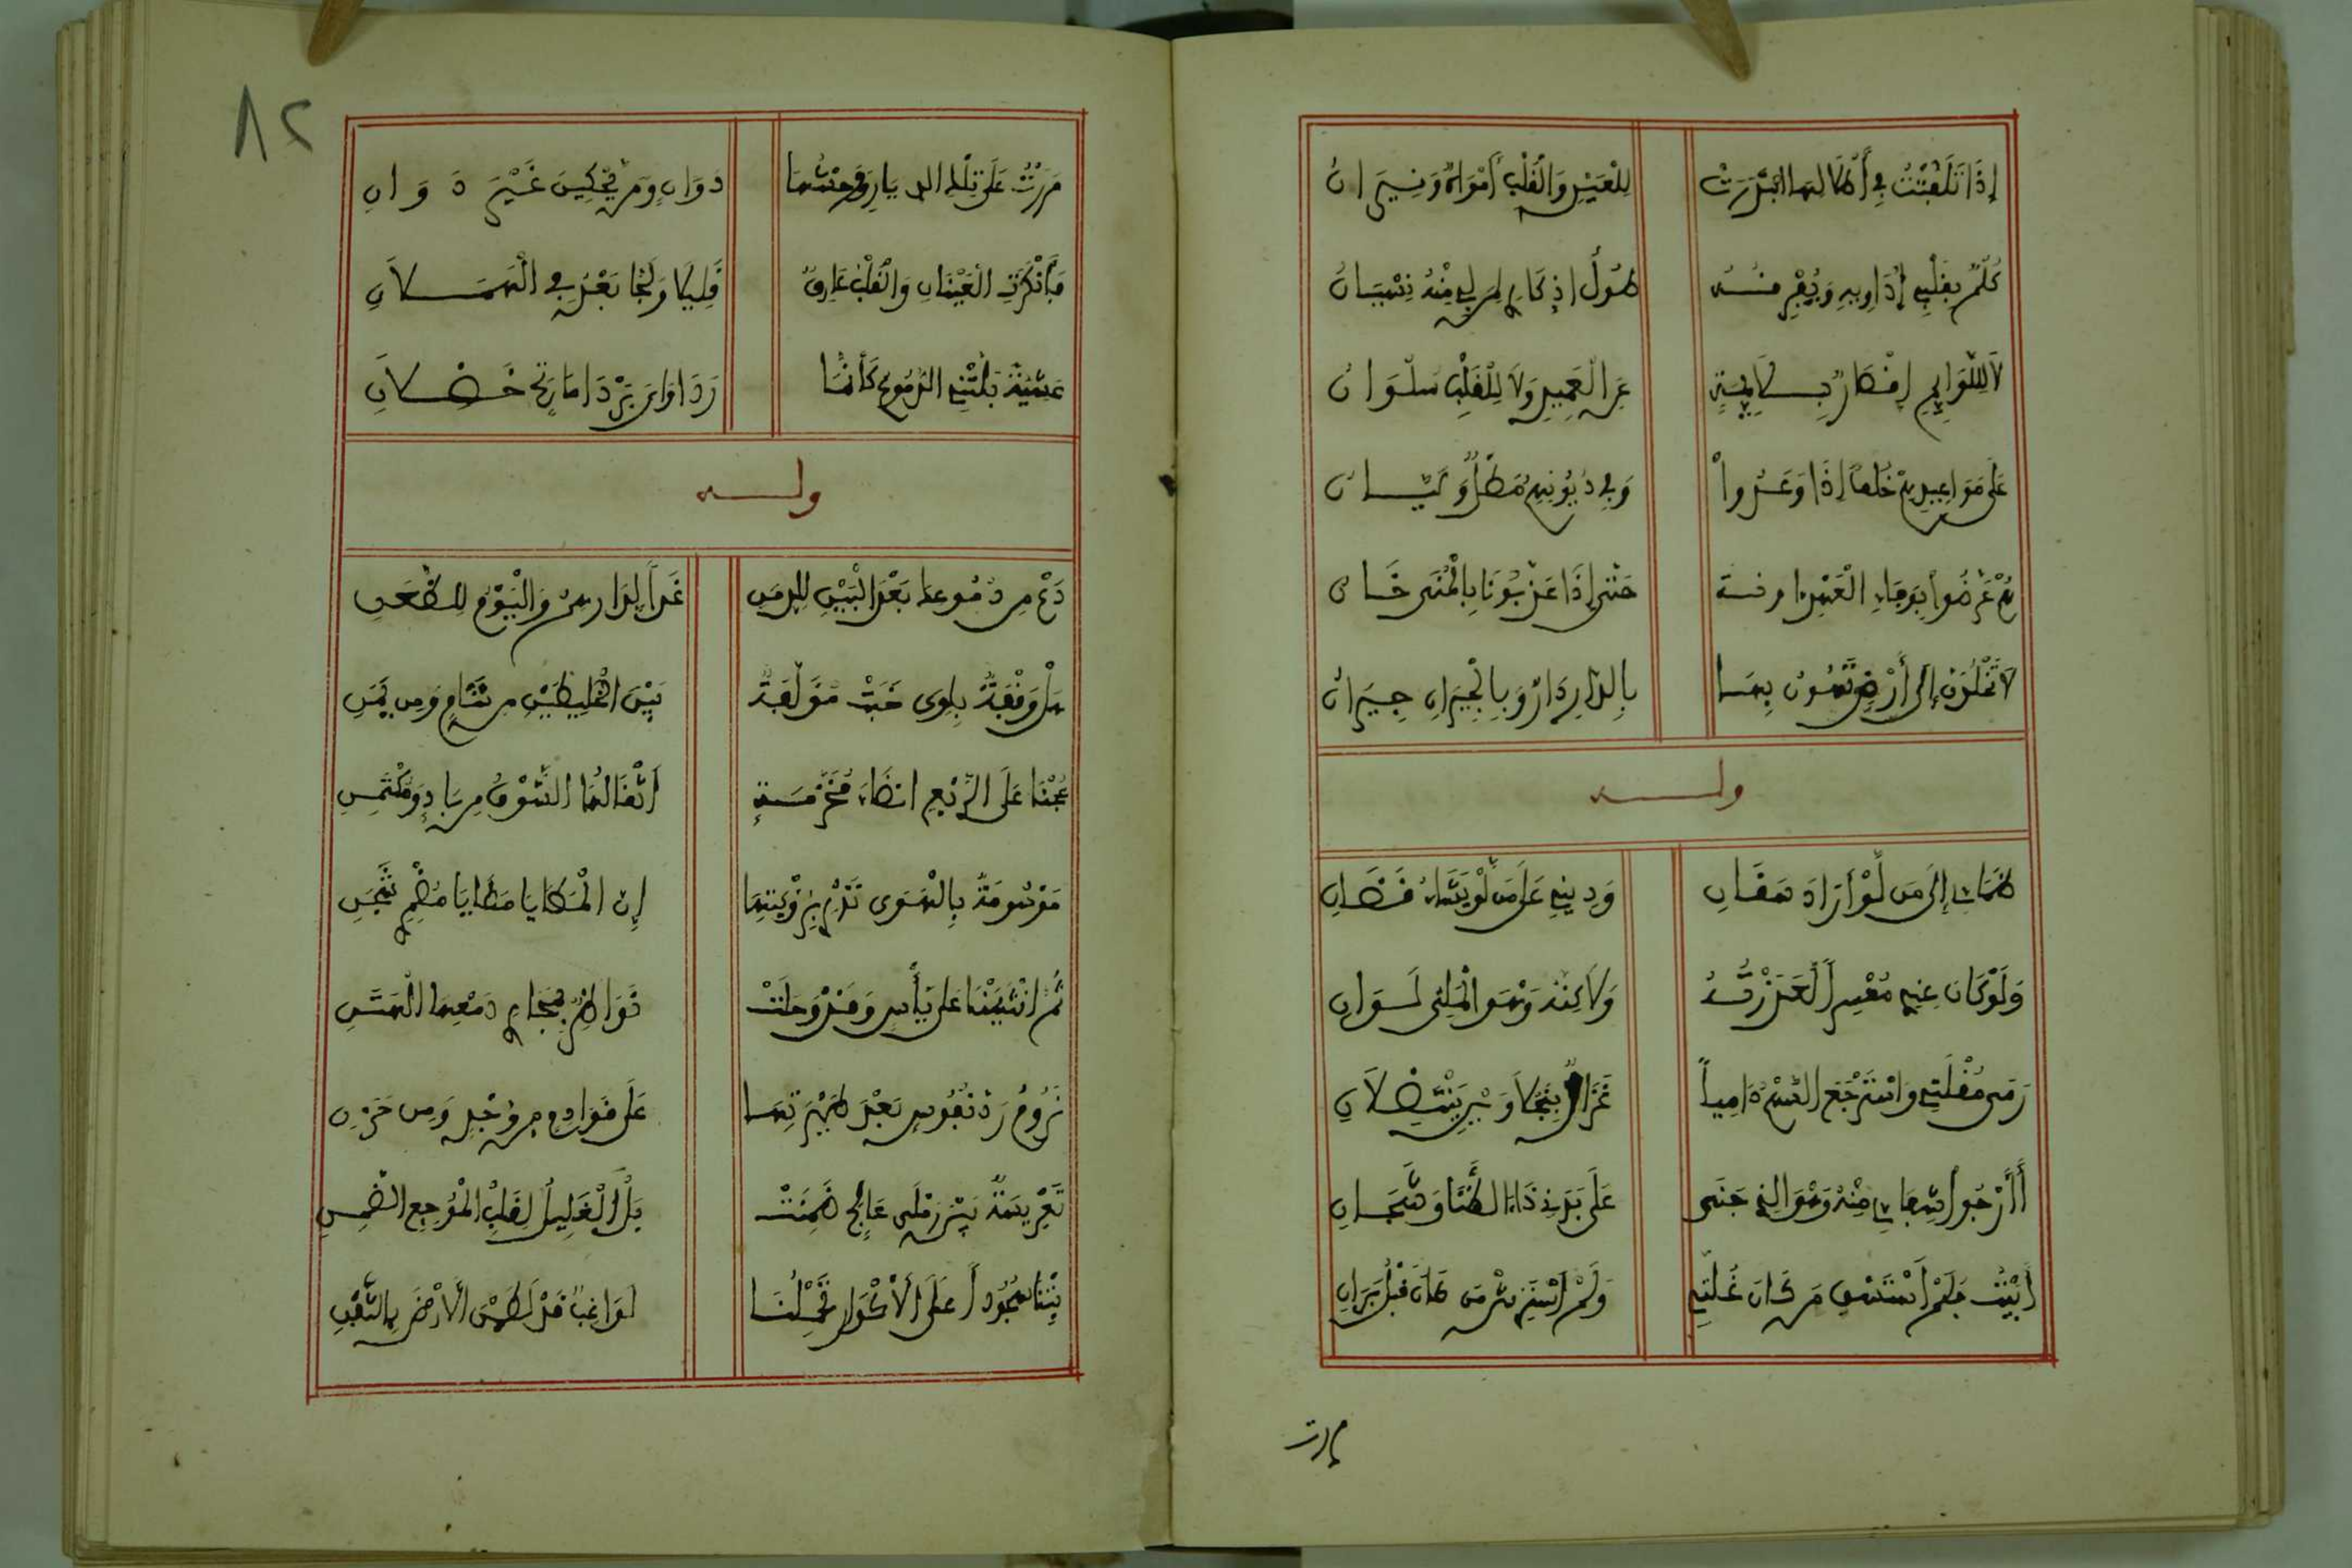 إِذَا تَلَفَّتُّ فِي أَطْلَالِهَا ابْتَدَرَتْ لِلْعَيْنِ وَالْقَلْبِ أَمْوَاهٌ وَنِيرَانُ
كَلْمٌ بِقَلْبِي أُدَاوِيهِ وَيُقْرِفُهُ طُولُ ادِّكَارِي لِمَنْ لِي مِنْهُ نِسْيَانُ
لَا لِلَّوَائِمِ إِقْصَارٌ بِلَائِمَةٍ عَنِ الْعَمِيدِ وَلَا لِلْقَلْبِ سَلْوَانُ
عَلَى مَوَاعِيدِهِمْ خُلْفٌ إِذَا وَعَدُوا وَفِي دُيُونِهِمُ مَطْلٌ وَلَيَّانُ
هُمْ عَرَّضُوا بِوَفَاءِ الْعَهْدِ آونة حَتَّى إِذَا عَذَّبُونَا بِالْمُنَى خَانُوا
لَا تَخْلُدَنَّ إِلَى أَرْضٍ تَهُونُ بِهَا بِالدَّارِ دَارٌ وَبِالْجِيرَانِ جِيرَانُ
وله
ظَمَائِي إِلَى مَن لَوْ أَرَادَ سَقَانِي وَدِينِي عَلَى مَن لَوْ يَشَاءُ قَضَانِي
وَلَوْ كَانَ عِنْدِي مُعْسِراً لَعَذَرْتُهُ وَلَاكِنَّهُ وَهْوَ الْمَلِيُّ لَوَانِي
رَمَى مُقْلَتِي وَاسْتَرْجَعَ السَّهْمَ دَامِياً غَزَالٌ بِنَجْلَاوَيْنِ يَنْتَضِلَانِ
أَأَرْجُو شِفَائِي مِنْهُ وَهْوَ الذِي جَنَى عَلَى بَدَنِي دَاءَ الضَّنَا وَشَجَانِي
أَبِيتُ فَلَمْ أَسْتَسْقِ مَن كَانَ غُلَّتِي وَلَمْ أَسْتَرِشْ مَن كَانَ قَبْلُ بَرَانِي
مررت
٨٢
مَرَرْتُ عَلَى تِلْكَ الدِّيَارِ وَوَحْشُهَا دَوَانٍ وَمَن يَحْكِينَ غَيْرُ دَوَانِ
فَأَنْكَرَتِ الْعَيْنَانِ وَالْقَلْبُ عَارِفٌ قَلِيلًا وَلَجَّا بَعْدُ فِي الْهَمَلَانِ
عَشِيَّةَ بَلَّتْنِي الدُّمُوعُ كَأَنَّمَا رِدَاوَايَ بُرْدَا مَاتِحٍ خَضِلَانِ
وله
دَعْ مِن دُمُوعِكَ بَعْدَ الْبَيْنِ لِلدِّمَنِ غَداً لِدَارِهِمُ وَالْيَوْمَ لِلظُّعُنِ
هَلْ وَقْفَةٌ بِلِوَى خَبْتٍ مُؤَلِّفَةٌ بَيْنَ الْخَلِيطَيْنِ مِن شَامٍ وَمِن يَمَنِ
عُجْنَا عَلَى الرَّبْعِ أنضَاءً مُخَزَّمَةٍ أَثْقَالُهَا الشَّوْقُ مِن بَادٍ وَمُكْتَمِنِ
مَوْسُومَةٌ بِالْهَوَى تَدْرِي بِرُؤْيَتِهَا إِنَّ الْمَطَايَا مَطَايَا مُضْمِرِي شَجَنِ
ثُمَّ انْثَنَيْنَا عَلَى يَأْسٍ وَقَدْ وَجِلَتْ نَوَاظِرٌ بِمَجَارِي دَمْعِهَا الْهَتِنِ
نَرُومُ رَدَّ نُفُوسٍ بَعْدَ طَيْرَتِهَا عَلَى قَوَادِمَ مِن وَجْدٍ وَمِن حَزَنِ
تَعْرِيسَةٌ بَيْنَ رَمْلَيْ عَالِجٍ ضَمِنَتْ بَلَّ الْغَلِيلِ لِقَلْبِ الْمُوجِعِ الضَّمِنِ
بِتْنَا سُجُوداً عَلَى الْأَكْوَارِ تَحْمِلُنَا لَوَاغِبٌ قَدْ لَطَمْنَ الْأَرْضَ بِالثَّفِنِ